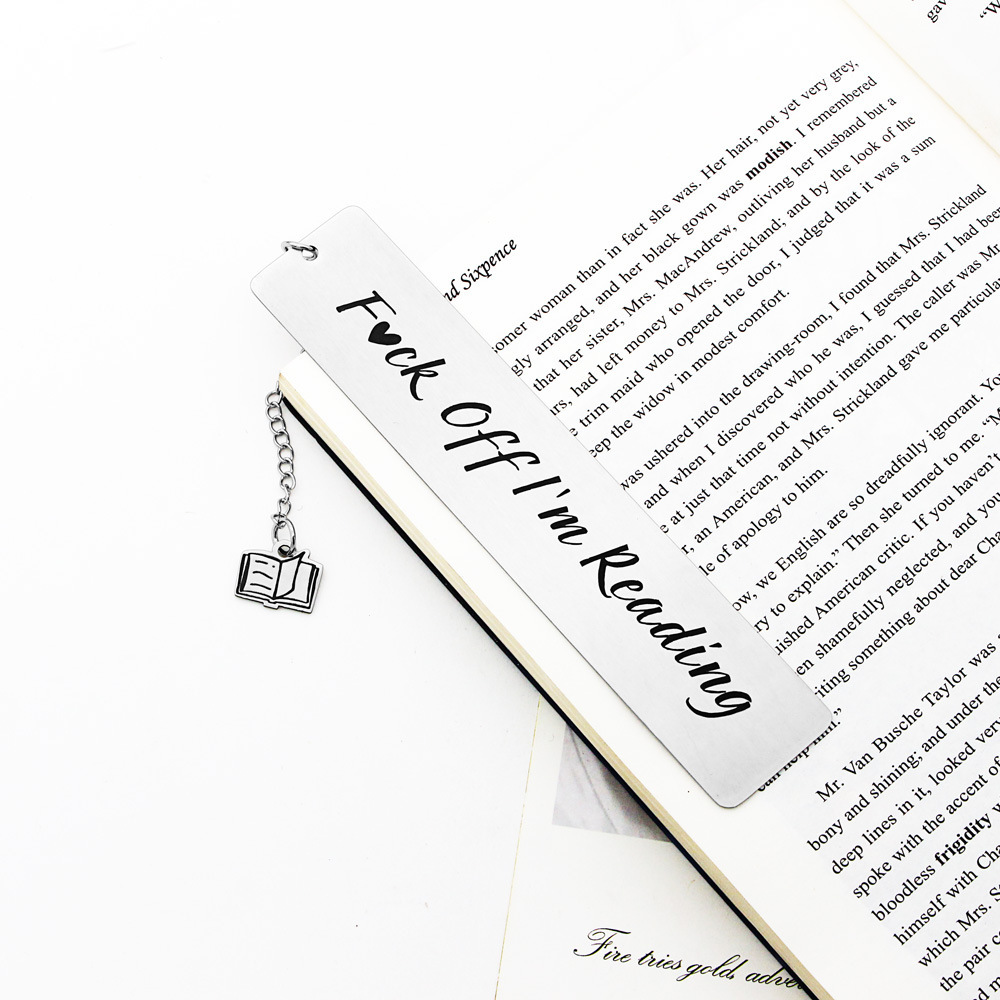 F♥ck Off I'm Reading
Sixpence
woman than in fact she was. Her hair, not yet very grey,
arranged, and her black gown was modish. I remembered
that her sister, Mrs. MacAndrew, outliving her husband but a
had left money to Mrs. Strickland; and by the look of the
trim maid who opened the door, I judged that it was a sum
the widow in modest comfort.
was ushered into the drawing-room, I found that Mrs. Strickland
and when I discovered who he was, I guessed that I had been
at just that time not without intention. The caller was Mr
an American, and Mrs. Strickland gave me
of apology to him.
we English are so dreadfully ignorant.
to explain.” Then she turned to me.
American critic. If you haven’t
shamefully neglected, and you
something about dear
Mr. Van Busche Taylor was
bony and shining; and under the
deep lines in it, looked very
spoke with the accent of
bloodless frigidity
himself with
which Mrs.
the pair
Fire tries gold,